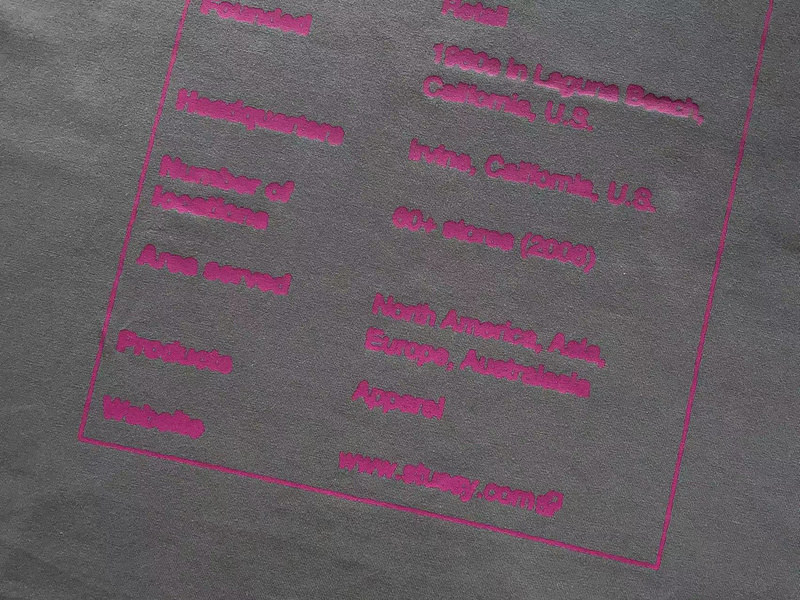 Retail
Founded
1980s in Laguna Beach,
California, U.S.
Headquarters
Irvine, California, U.S.
Number of
locations
60+ stores (2006)
Area served
North America, Asia,
Europe, Australasia
Products
Apparel
Website
www.stussy.com